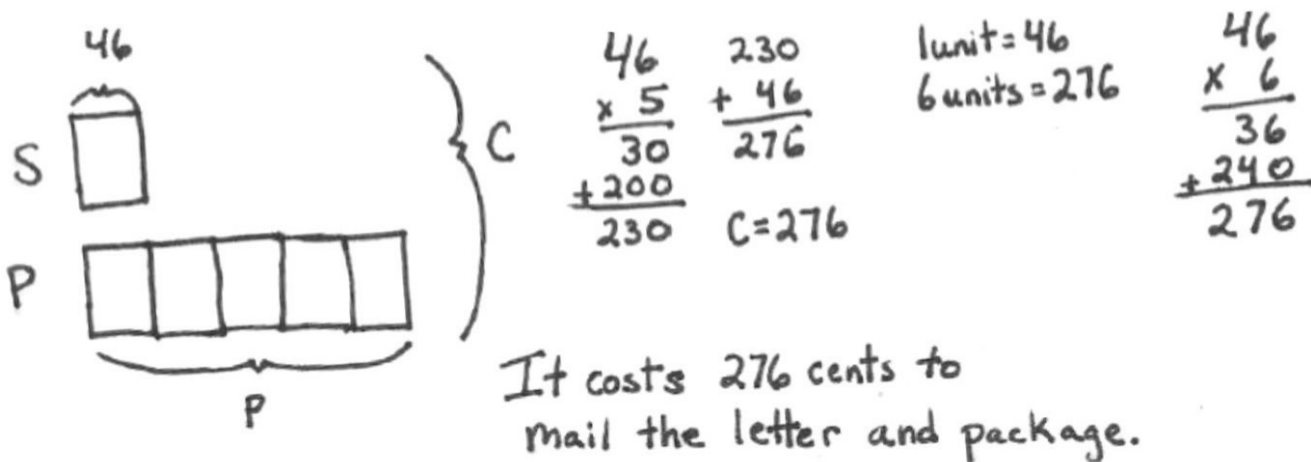 46
S
P
P
C
46
x 5
30
+200
230
230
+ 46
276
C=276
1unit=46
6units=276
46
x 6
36
+240
276
It costs 276 cents to
mail the letter and package.